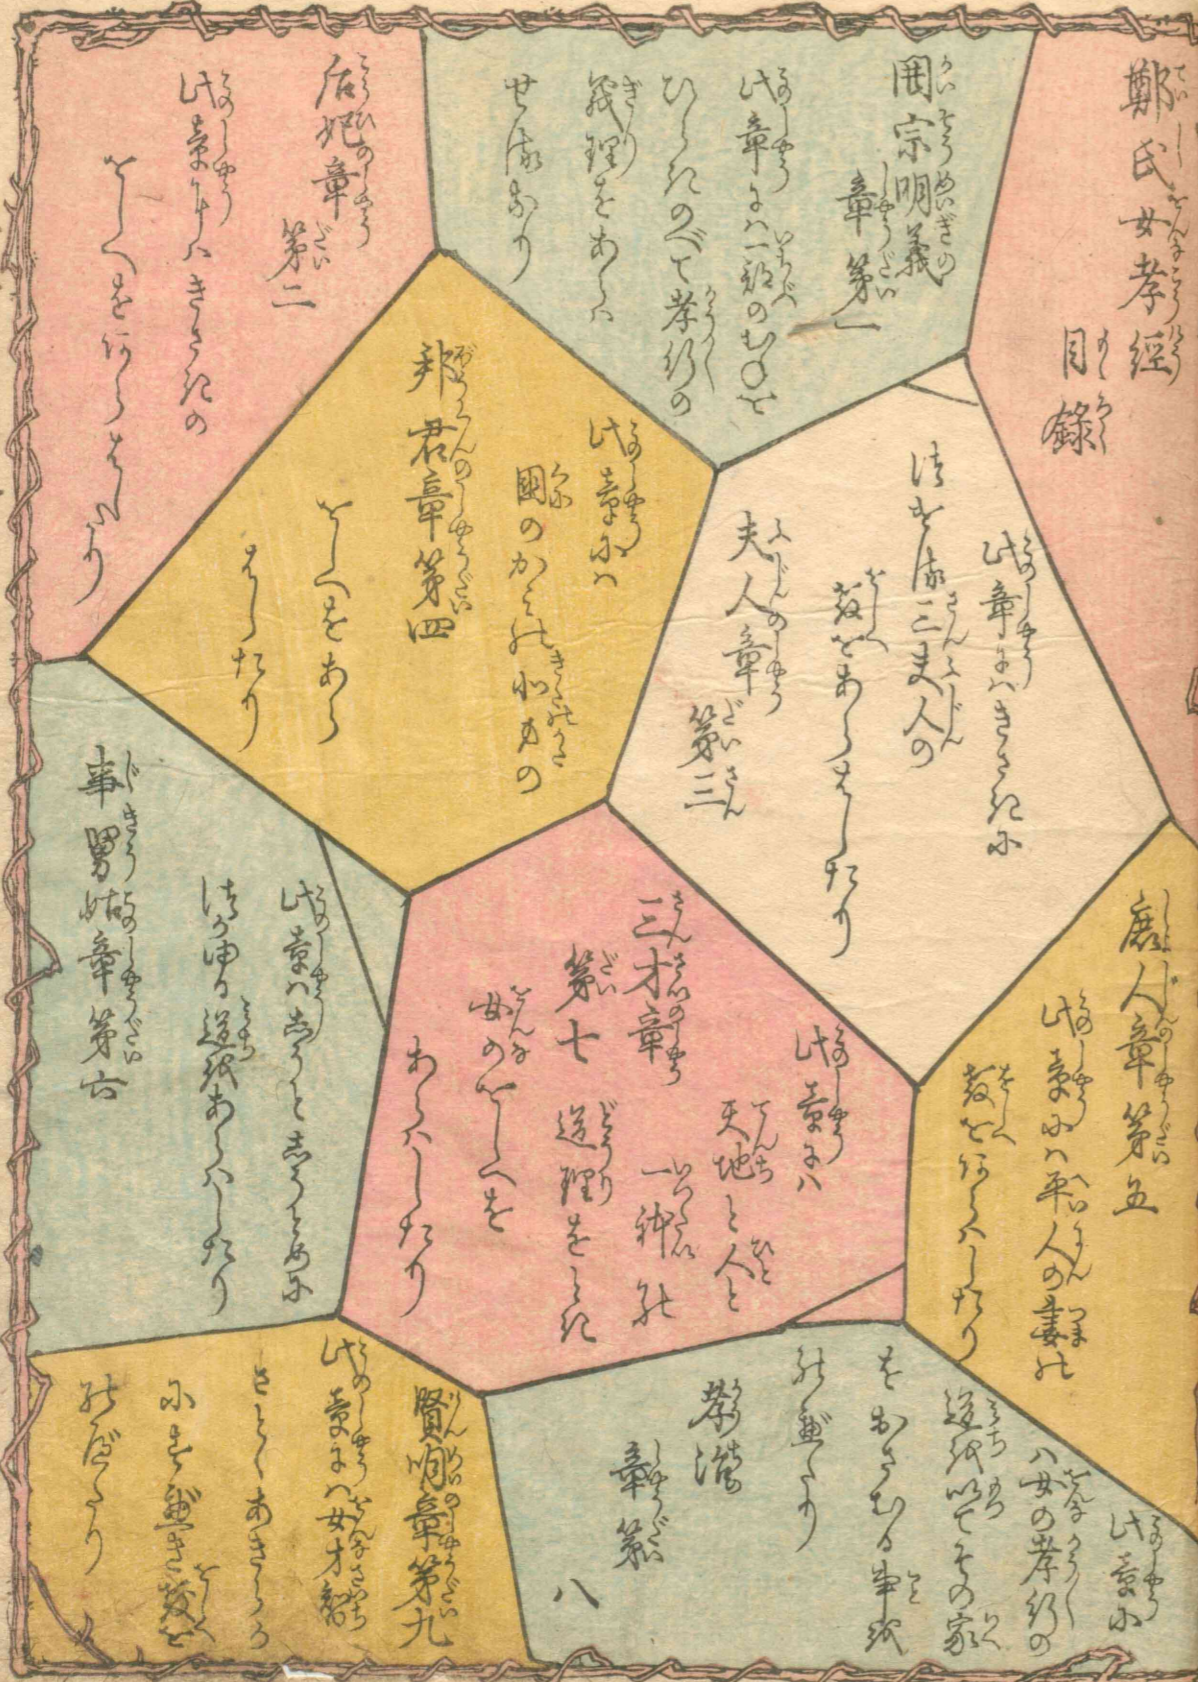 鄭氏女孝經
目錄
開宗明義
章第一
此章には一部のむねを
ひらきのべて孝行の
義理をあらは
せるなり
后妃章
第二
此章にはきさきの
をしへをあらはしたり
夫人章
第三
此章にはきさきに
つぎる三夫人の
教をあらはしたり
邦君章第四
此章には
國のかみの北方の
をしへをあら
はしたり
庶人章第五
此章には平人の妻の
教をあらはしたり
事舅姑章第六
此章はしうとしうとめに
つかゆる道をあらはしたり
三才章
第七
此章には
天地と人と
一躰の
道理をとき
女のをしへを
あらはしたり
孝治
章第
八
此章に
は女の孝行の
道を以てその家
をおさむる事を
のべたり
賢明章第九
此章には女才智
さとくあきらか
にすべき教を
のべたり